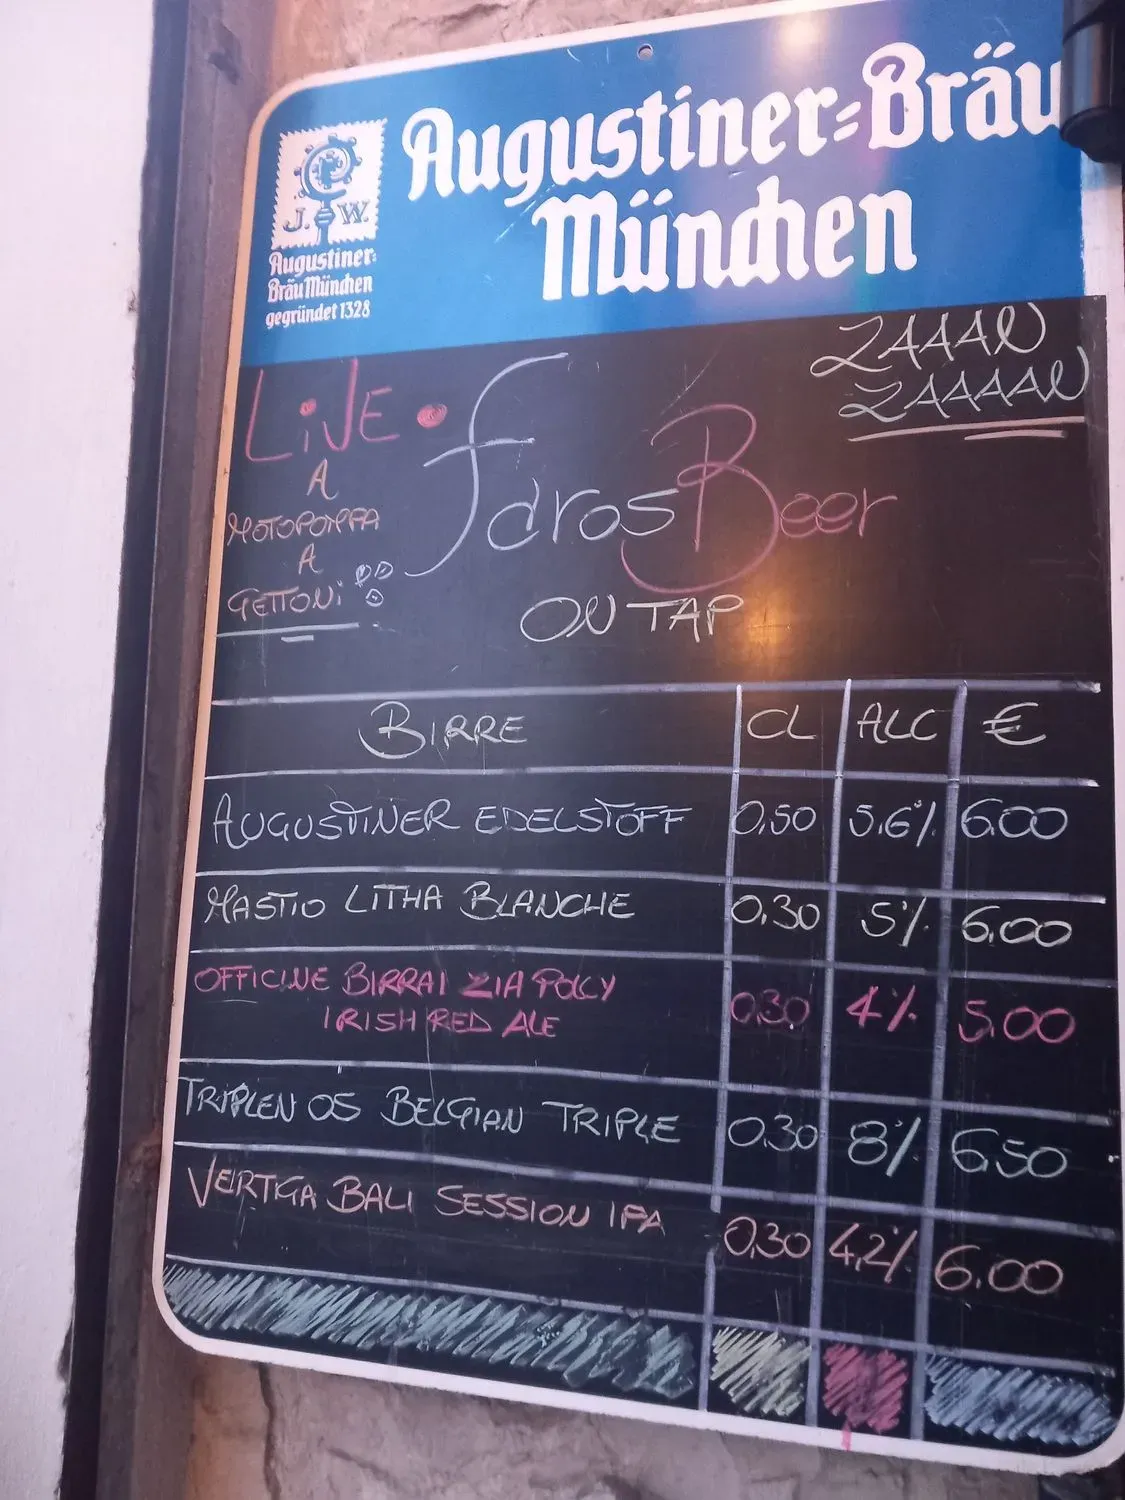 Augustiner-Bräu
München
J. W.
Augustiner-
Bräu München
gegründet 1328
ZAAAN
ZAAAAN
LiVE
A
MOTOPOMPA
A
GETTONi
Faros Beer
ON TAP
BIRRE CL ALC €
AUGUSTINER EDELSTOFF 0,50 5,6% 6.00
MASTIO LITHA BLANCHE 0,30 5% 6.00
OFFICINE BIRRAI ZIA POLLY
IRISH RED ALE 0,30 4% 5.00
TRIPLEN 05 BELGIAN TRIPLE 0,30 8% 6.50
VERTIGA BALI SESSION IPA 0,30 4,2% 6.00